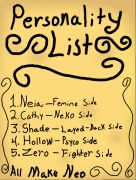 Personality
List
1. Neia - Femine Side
2. Cathy - Neko Side
3. Shade - Layed-Back Side
4. Hollow - Psyco Side
5. Zero - Fighter Side
All Make Neo